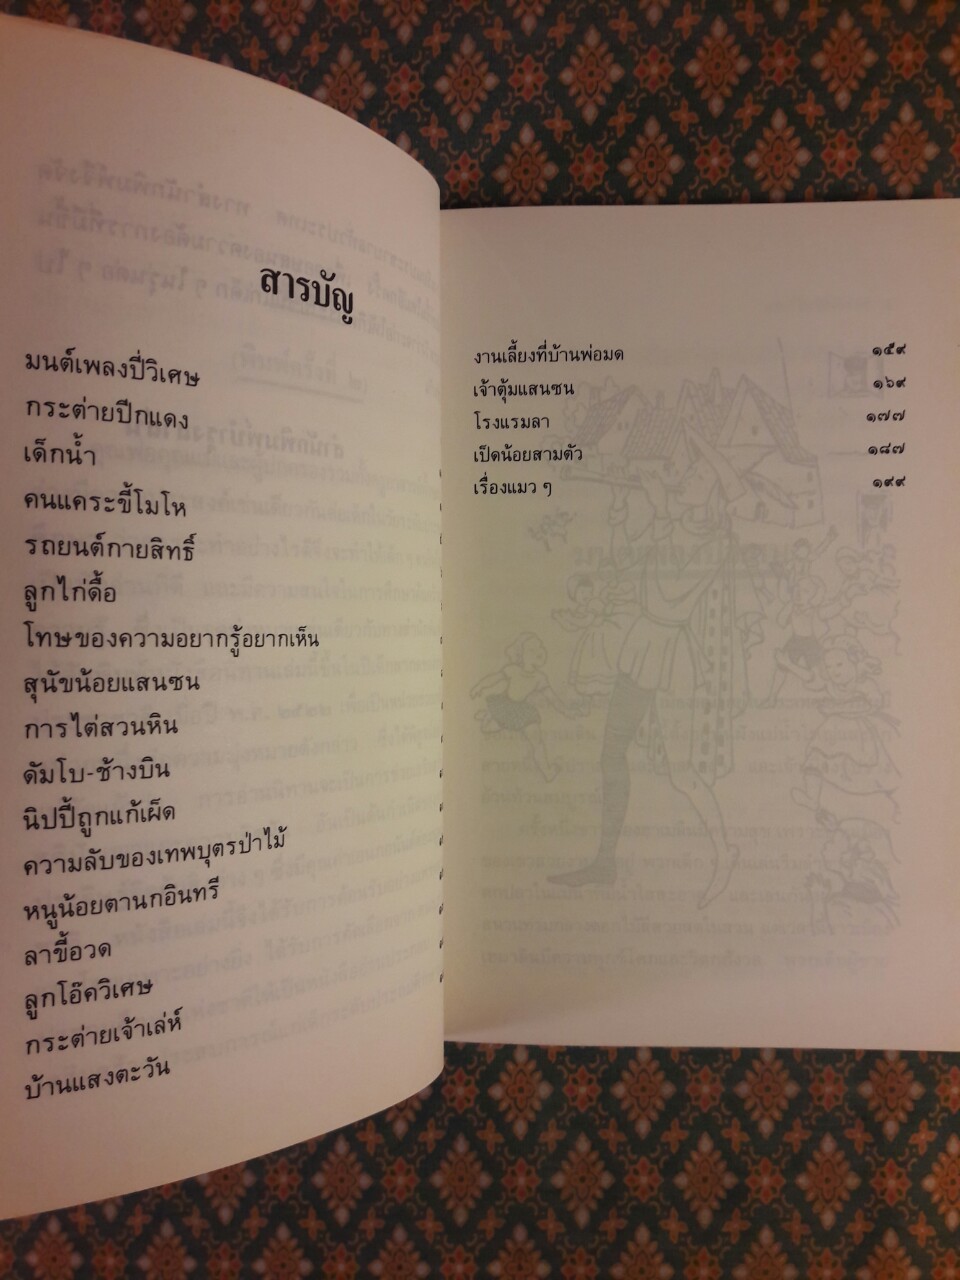 สารบัญ
มนต์เพลงปี่วิเศษ
กระต่ายปีกแดง
เด็กน้ำ
คนแคระขี้โมโห
รถยนต์กายสิทธิ์
ลูกไก่ดื้อ
โทษของความอยากรู้อยากเห็น
สุนัขน้อยแสนซน
การไต่สวนหิน
ดัมโบ-ช้างบิน
นิปปี้ถูกแก้เผ็ด
ความลับของเทพบุตรป่าไม้
หนูน้อยตานกอินทรี
ลาขี้อวด
ลูกโอ๊ควิเศษ
กระต่ายเจ้าเล่ห์
บ้านแสงตะวัน
งานเลี้ยงที่บ้านพ่อมด ๑๕๙
เจ้าตุ้มแสนซน ๑๖๙
โรงแรมลา ๑๗๗
เป็ดน้อยสามตัว ๑๘๗
เรื่องแมว ๆ ๑๙๙